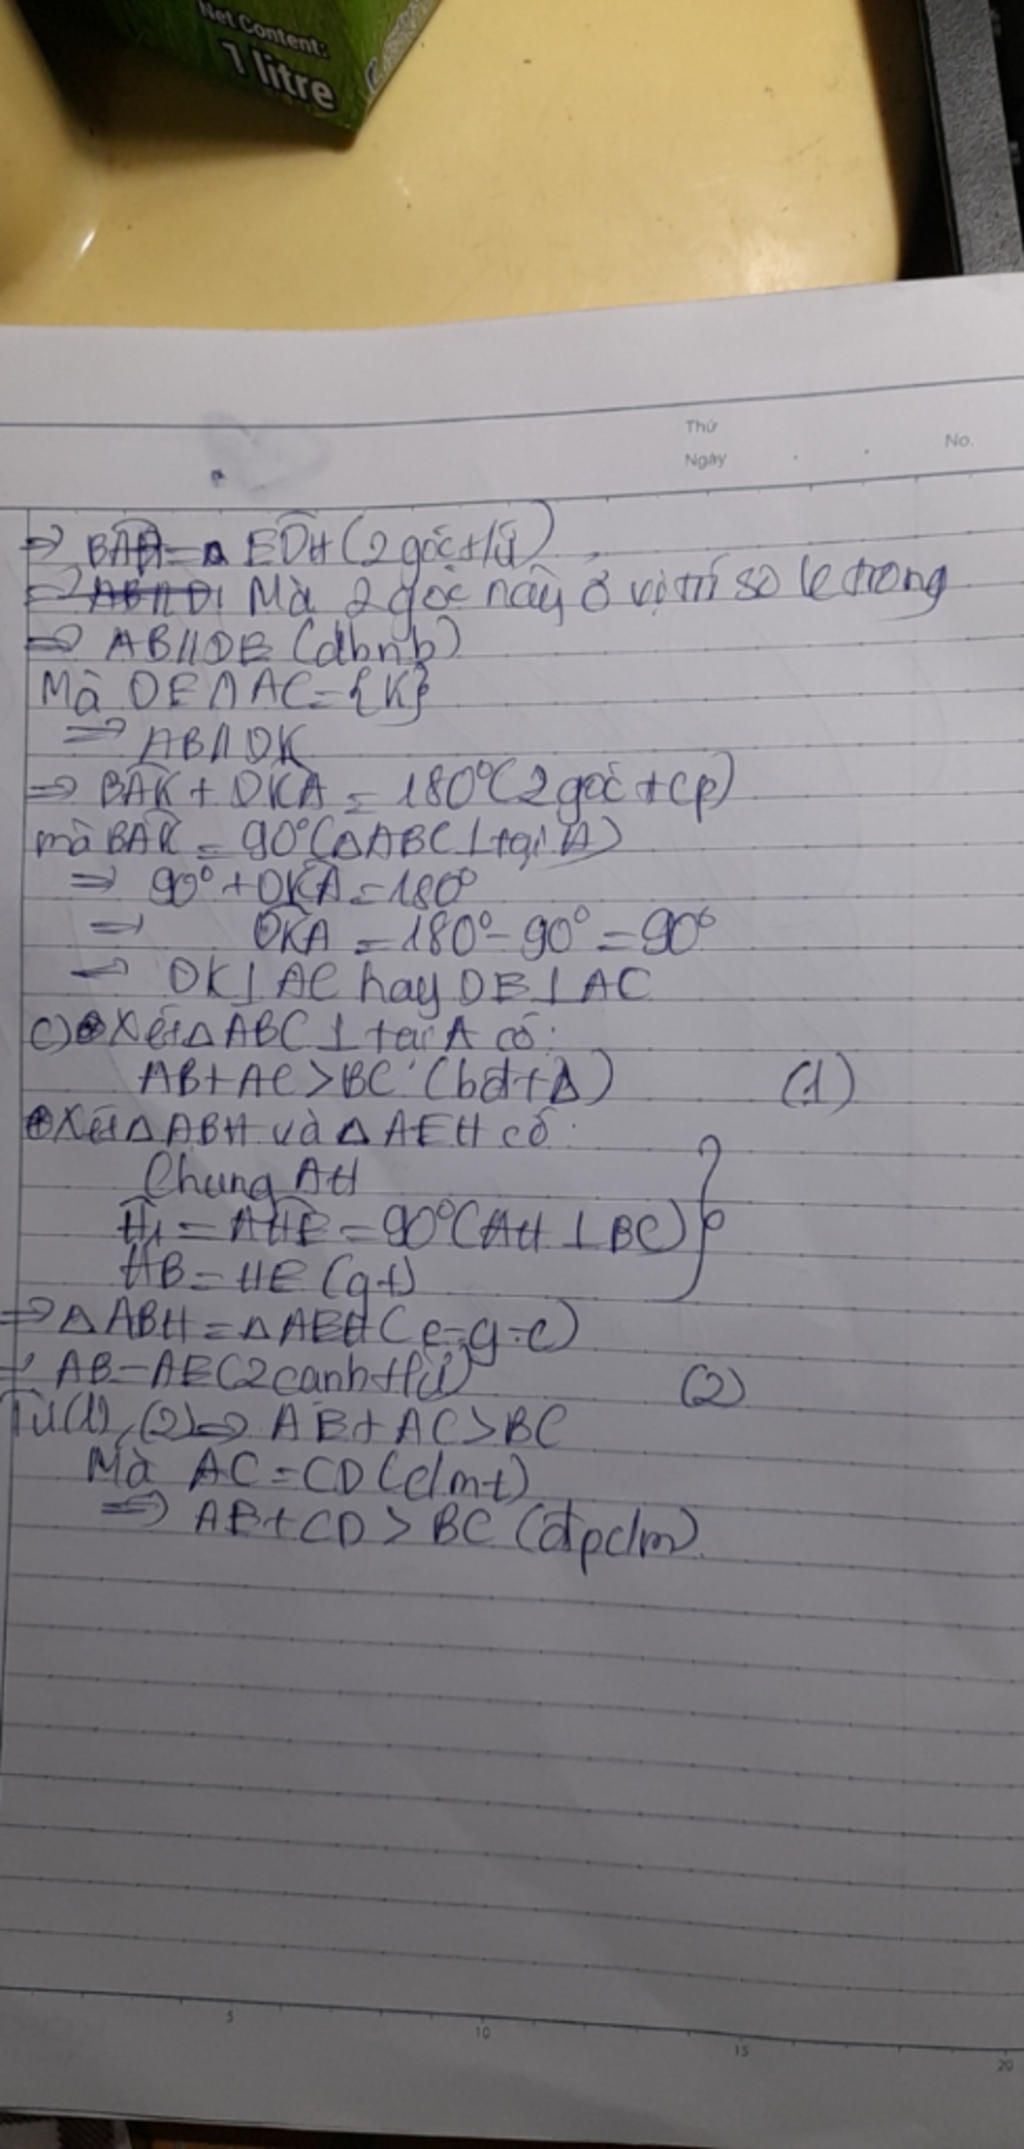 Net Content:
1 litre
Thứ
Ngày
No.
=> BAH = EDH (2 góc t/ứ)
Mà 2 góc này ở vị trí so le trong
=> AB//DE (dhnb)
Mà DE∩AC={K}
=> AB//DK
=> BAK + DKA = 180° (2 góc tcp)
mà BAK = 90° (△ABC ⊥ tại A)
=> 90° + DKA = 180°
=> DKA = 180° - 90° = 90°
=> DK⊥AC hay DE⊥AC
c) Xét △ABC ⊥ tại A có:
AB+AC>BC (bđt△) (1)
Xét △ABH và △AEH có:
Chung AH
H₁ = AHE = 90° (AH ⊥ BC)
HB=HE (gt)
=> △ABH = △AEH (c-g-c)
=> AB=AE (2 cạnh t/ứ) (2)
Từ (1), (2) => AE+AC>BC
Mà AC=CD (cmt)
=> AE+CD > BC (đpcm)
5
10
15
20